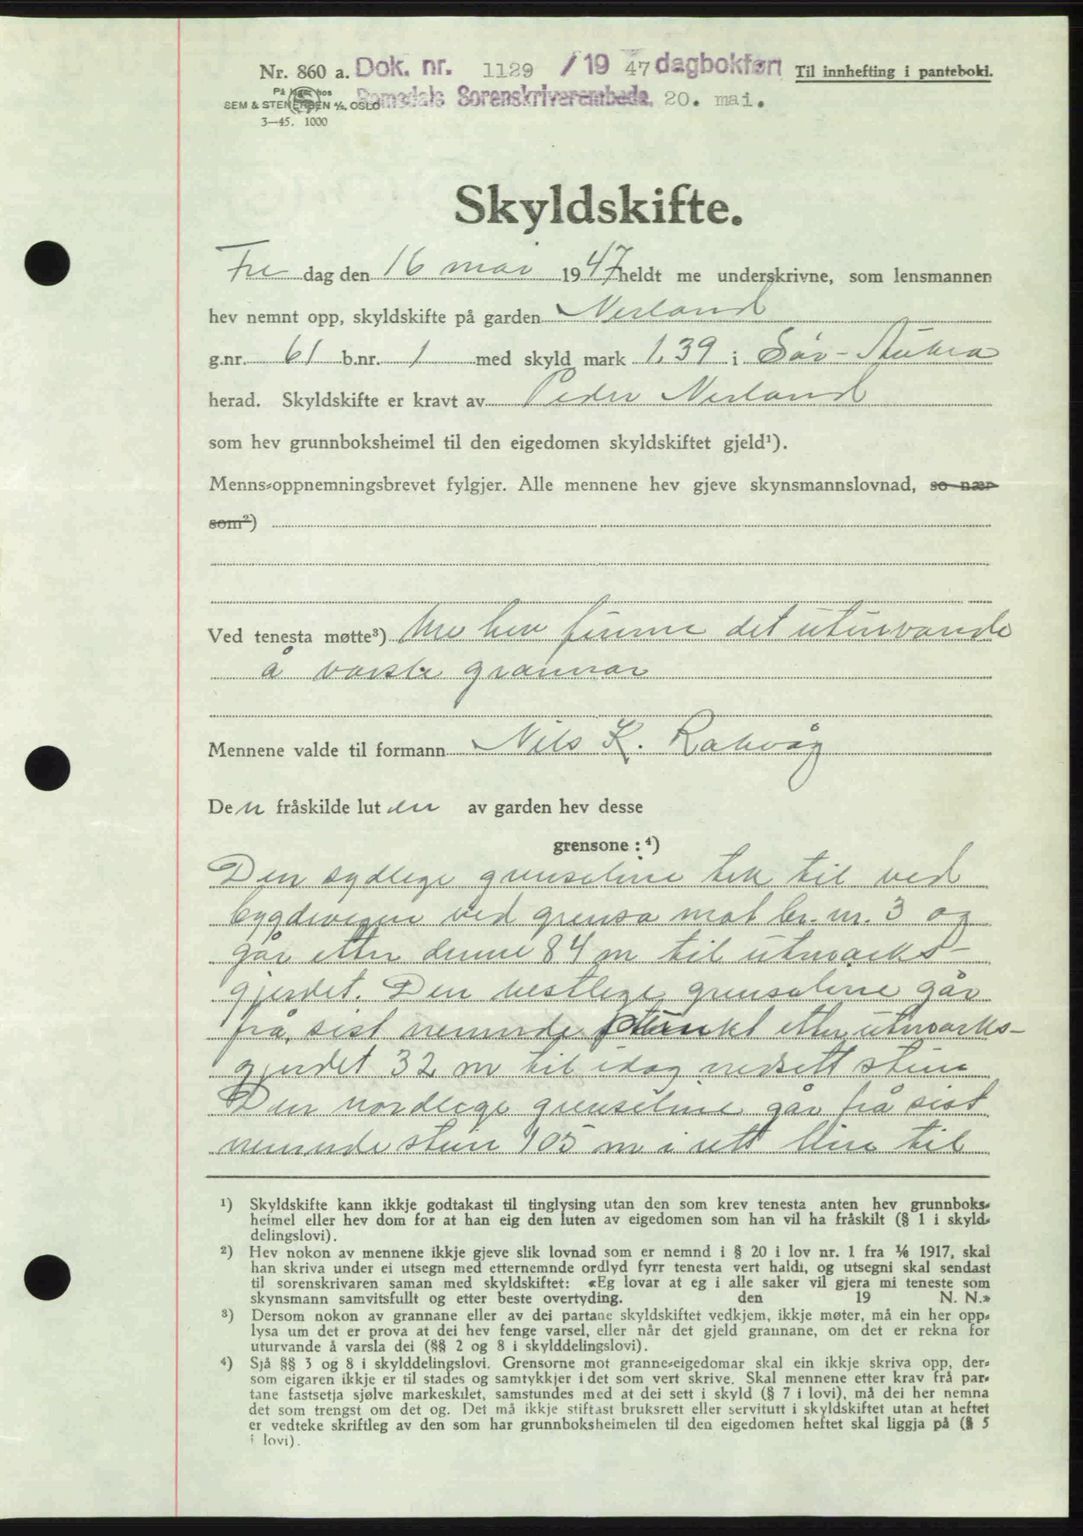 Nr. 860 a. Dok. nr. 1129 / 19 47 dagbokført Til innhefting i panteboki.
På hos Romsdals Sorenskriverembede, 20. mai.
SEM & STENERSEN A/S, OSLO
3—45. 1000
Skyldskifte.
Fre dag den 16 mai 1947 heldt me underskrivne, som lensmannen
hev nemnt opp, skyldskifte på garden Nerland
g.nr. 61 b.nr. 1 med skyld mark 1,39 i Sør-Aukra
herad. Skyldskifte er kravt av Peder Nerland
som hev grunnboksheimel til den eigedomen skyldskiftet gjeld¹).
Menns-oppnemningsbrevet fylgjer. Alle mennene hev gjeve skynsmannslovnad, so nær
som²)
Ved tenesta møtte³) Me hev funne det uturvande
å varsle grannar
Mennene valde til formann Nils K. Rakvåg
Den fråskilde luten av garden hev desse
grensone : ⁴)
Den sydlege grenseline tek til ved
bygdevegen ved grensa mot br. nr. 3 og
går etter denne 84 m til utmarks-
gjerdet. Den vestlege grenseline går
frå sist nemnde punkt etter utmarks-
gjerdet 32 m til idag nedsett stein
Den nordlege grenseline går frå sist
nemnde stein 105 m i rett line til
¹) Skyldskifte kann ikkje godtakast til tinglysing utan den som krev tenesta anten hev grunnboks-
heimel eller hev dom for at han eig den luten av eigedomen som han vil ha fråskilt (§ 1 i skyld-
delingslovi).
²) Hev nokon av mennene ikkje gjeve slik lovnad som er nemnd i § 20 i lov nr. 1 fra ⅙ 1917, skal
han skriva under ei utsegn med etternemnde ordlyd fyrr tenesta vert haldi, og utsegni skal sendast
til sorenskrivaren saman med skyldskiftet: «Eg lovar at eg i alle saker vil gjera mi teneste som
skynsmann samvitsfullt og etter beste overtyding. den 19 N. N.»
³) Dersom nokon av grannane eller av dei partane skyldskiftet vedkjem, ikkje møter, må ein her opp-
lysa um det er prova at dei hev fenge varsel, eller når det gjeld grannane, om det er rekna for
uturvande å varsla dei (§§ 2 og 8 i skylddelingslovi).
⁴) Sjå §§ 3 og 8 i skylddelingslovi. Grensorne mot granne-eigedomar skal ein ikkje skriva opp, der-
som eigaren ikkje er til stades og samtykkjer i det som vert skrive. Skal mennene etter krav frå par-
tane fastsetja sjølve markeskilet, samstundes med at dei sett i skyld (§ 7 i lovi), må dei her nemna
det som trengst om det og. Det må ikkje stiftast bruksrett eller servitutt i skyldskiftet utan at heftet
er vedteke skriftleg av den som har grunnboksheimelen til den eigedomen heftet skal liggja på (§ 5
i lovi).